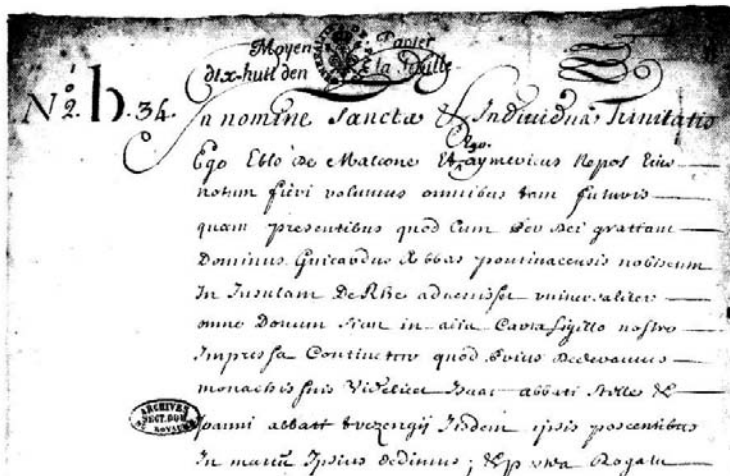 Moyen Papier
dix-huit den la feuille
No 2. h. 34.
In nomine sanctæ & Individuæ Trinitatis
Ego.
Ego Eblo de Maleone Et aymericus Nepos Eius
notum fieri volumus omnibus tam futuris
quam presentibus quod Cum Dei gratiam
Dominus Guicardus Abbas pontiniacensis nobiscum
In Insulam De Rhe advenisset universaliter
omne Donum sicut in alia Carta sigillo nostro
Impressa Continetur quod prius Dederamus
monachis suis Videlicet Isaac abbati stelle &
Joanni abbati trezengij Iisdem ipsis poscentibus
In manu Ipsius dedimus ; & Rogatu
ARCHIVES
SECT. DOM.
DU ROYAUME